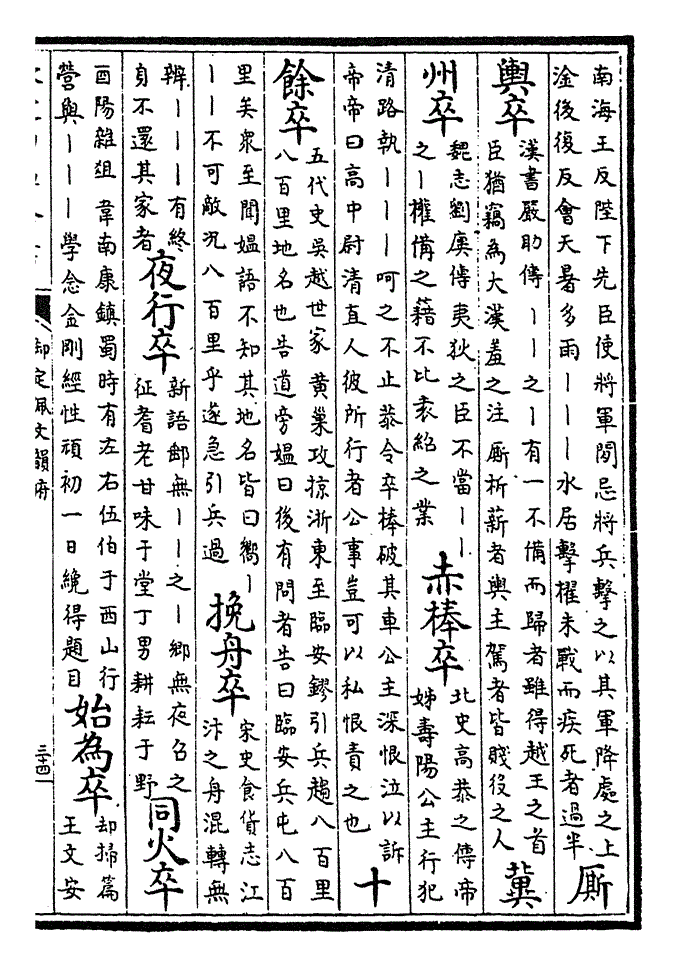 南海王反陛下先臣使將軍閒忌將兵擊之以其軍降處之上
淦後復反會天暑多雨｜｜｜水居擊櫂未戰而疾死者過半
厮
輿卒
漢書嚴助傳｜｜之｜有一不備而歸者雖得越王之首
臣猶竊為大漢羞之注厮析薪者輿主駕者皆賤役之人
冀
州卒
魏志劉廙傳夷狄之臣不當｜｜
之｜權備之藉不比袁紹之業
赤棒卒
北史高恭之傳帝
姊壽陽公主行犯
清路執｜｜｜呵之不止恭令卒棒破其車公主深恨泣以訴
帝帝曰高中尉清直人彼所行者公事豈可以私恨責之也
十
餘卒
五代史吳越世家黄巢攻掠浙東至臨安鏐引兵趨八百里
八百里地名也告道旁媼曰後有問者告曰臨安兵屯八百
里矣衆至聞媼語不知其地名皆曰嚮｜
｜｜不可敵况八百里乎遂急引兵過
挽舟卒
宋史食貨志江
汴之舟混轉無
辨｜｜｜有終
身不還其家者
夜行卒
新語郵無｜｜之｜鄉無夜召之
征耆老甘味于堂丁男耕耘于野
同火卒
酉陽雜俎韋南康鎮蜀時有左右伍伯于西山行
營與｜｜｜學念金剛經性頑初一日纔得題目
始為卒
却掃篇
王文安
御定佩文韻府
三十四